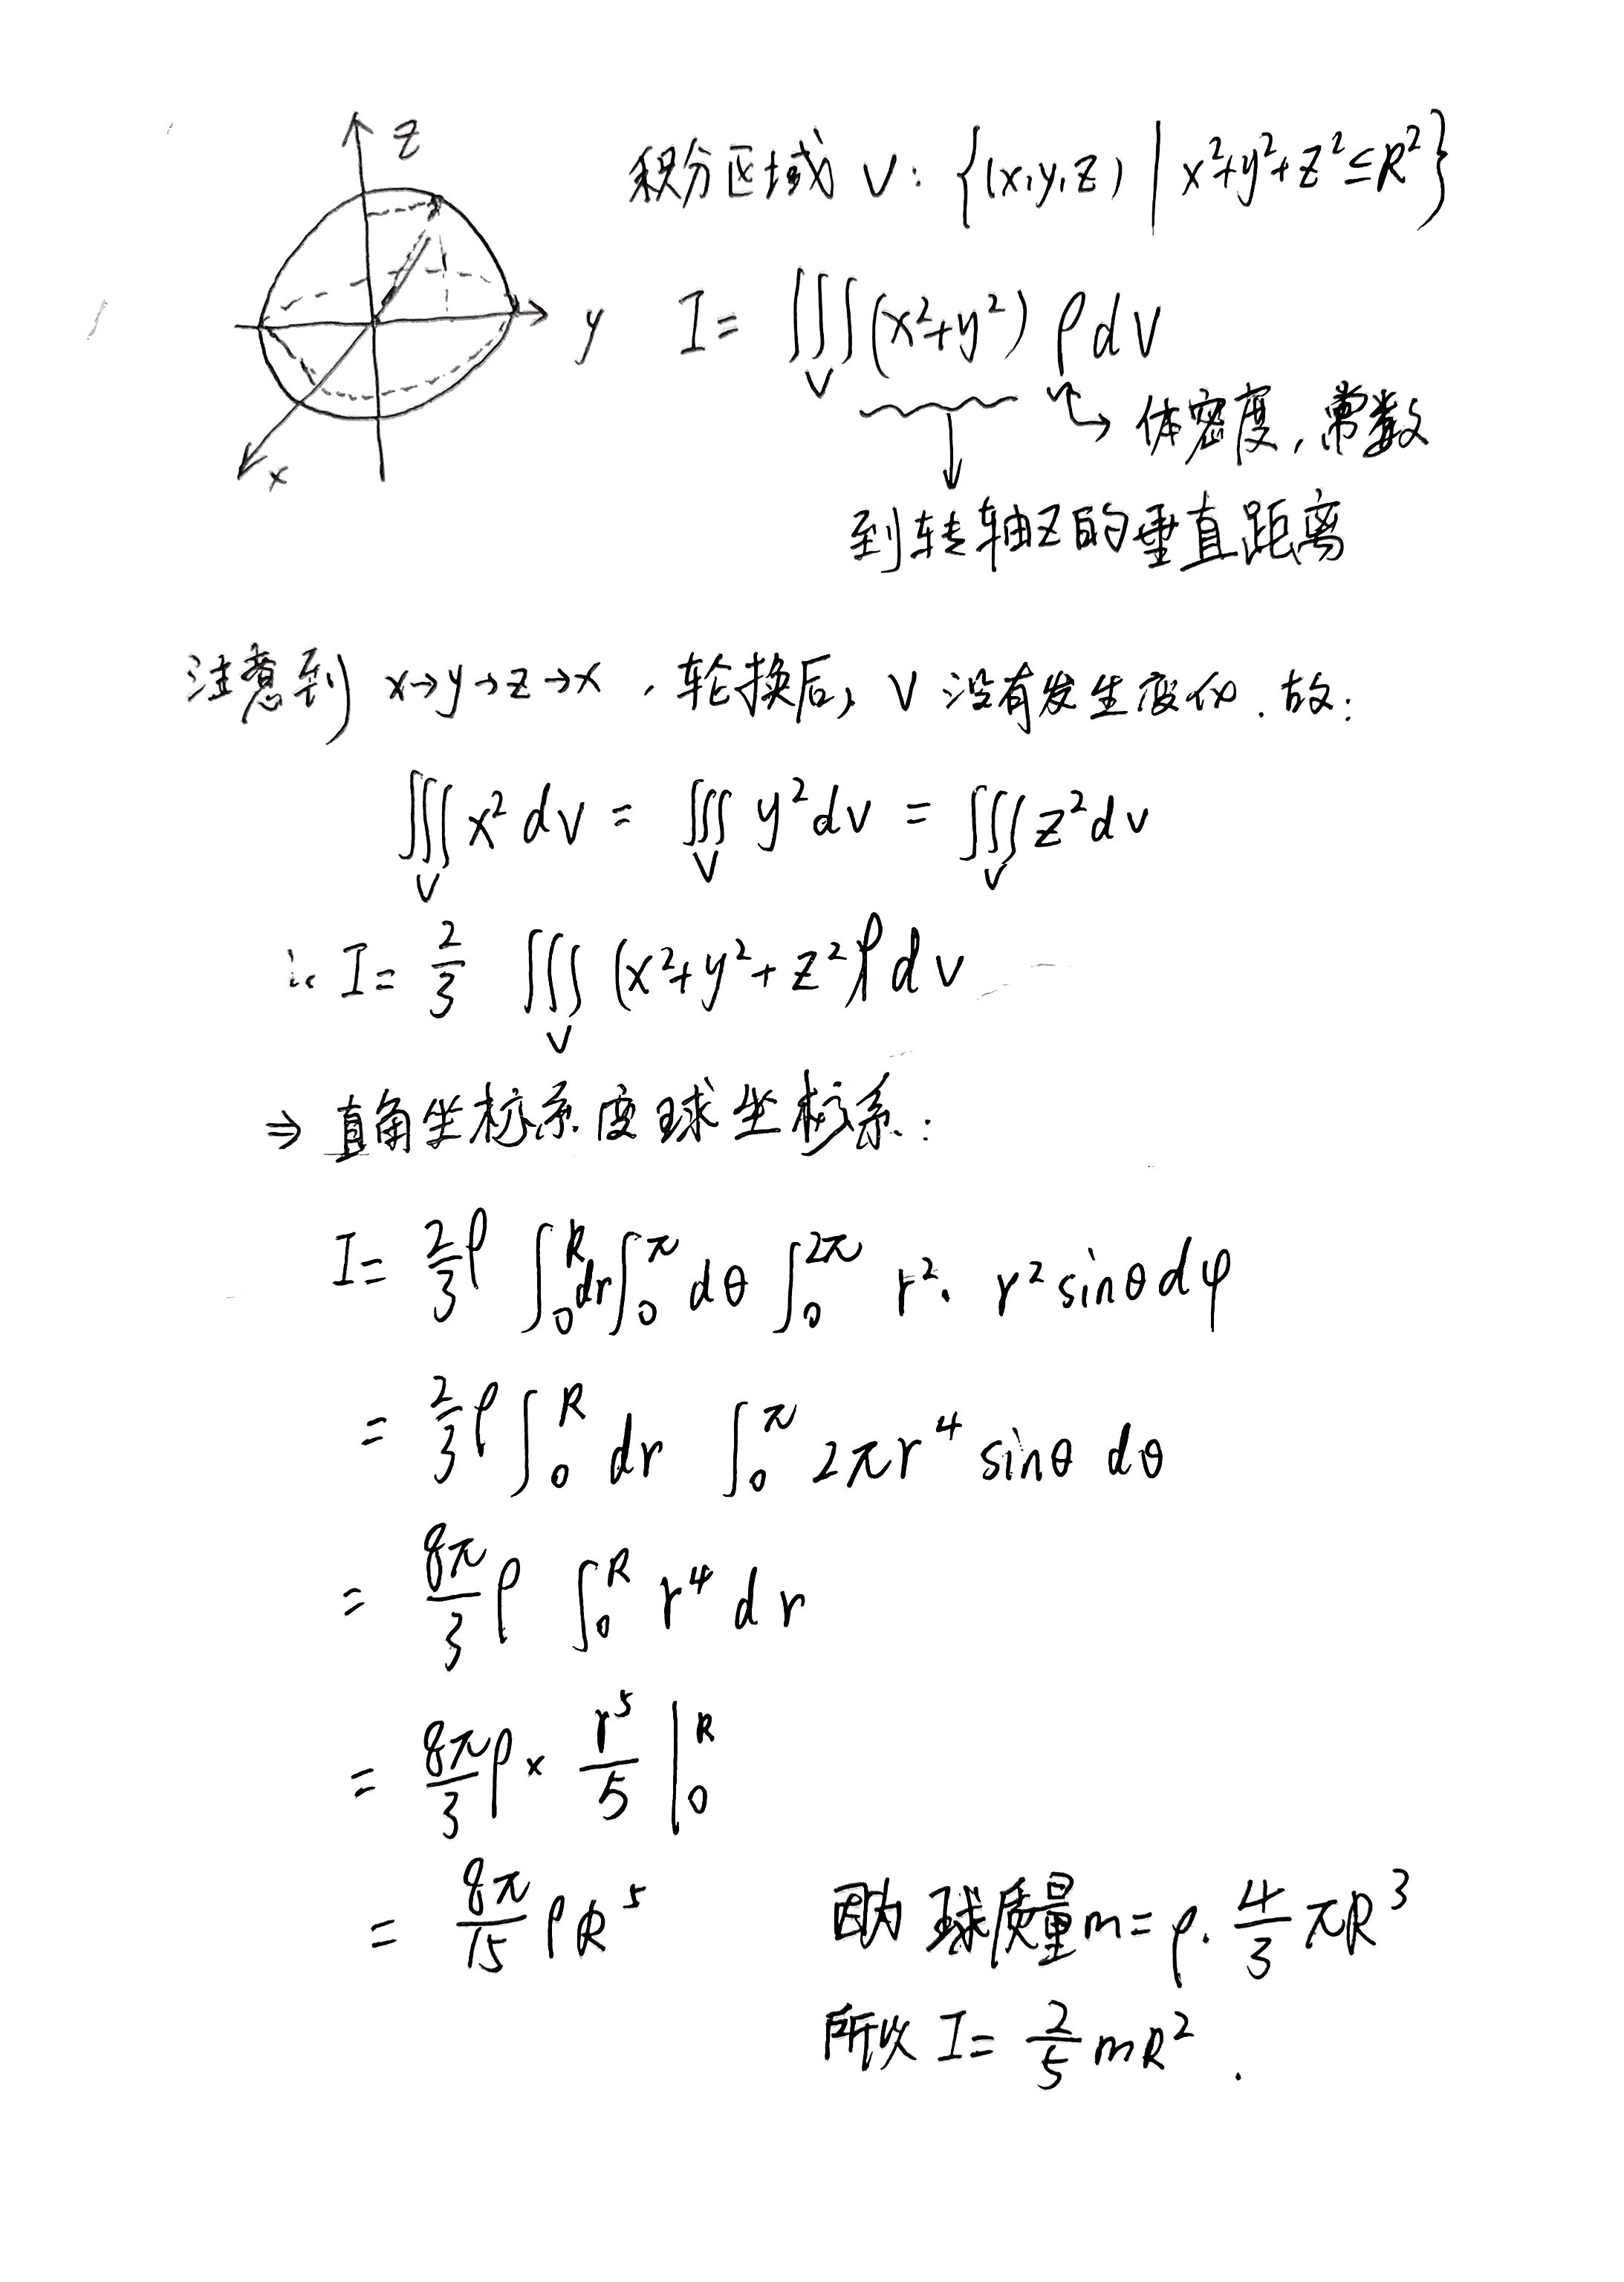 z
积分区域 V: {(x,y,z) | x²+y²+z²≤R²}
y
I= ∭_V (x²+y²) ρ dV
x
体密度,常数
到转轴Z的垂直距离
注意到 x→y→z→x ,轮换后, V 没有发生变化. 故:
∭_V x² dv = ∭_V y² dv = ∭_V z² dv
∴ I= 2/3 ∭_V (x²+y²+z²)ρ dv
⇒ 直角坐标系变球坐标系:
I= 2/3 ρ ∫₀^R dr ∫₀^π dθ ∫₀^2π r²· r² sinθ dφ
= 2/3 ρ ∫₀^R dr ∫₀^π 2πr⁴ sinθ dθ
= 8π/3 ρ ∫₀^R r⁴ dr
= 8π/3 ρ × r⁵/5 |₀^R
= 8π/15 ρR⁵ 因为 球质量m=ρ· 4/3 πR³
所以 I= 2/5 mR².